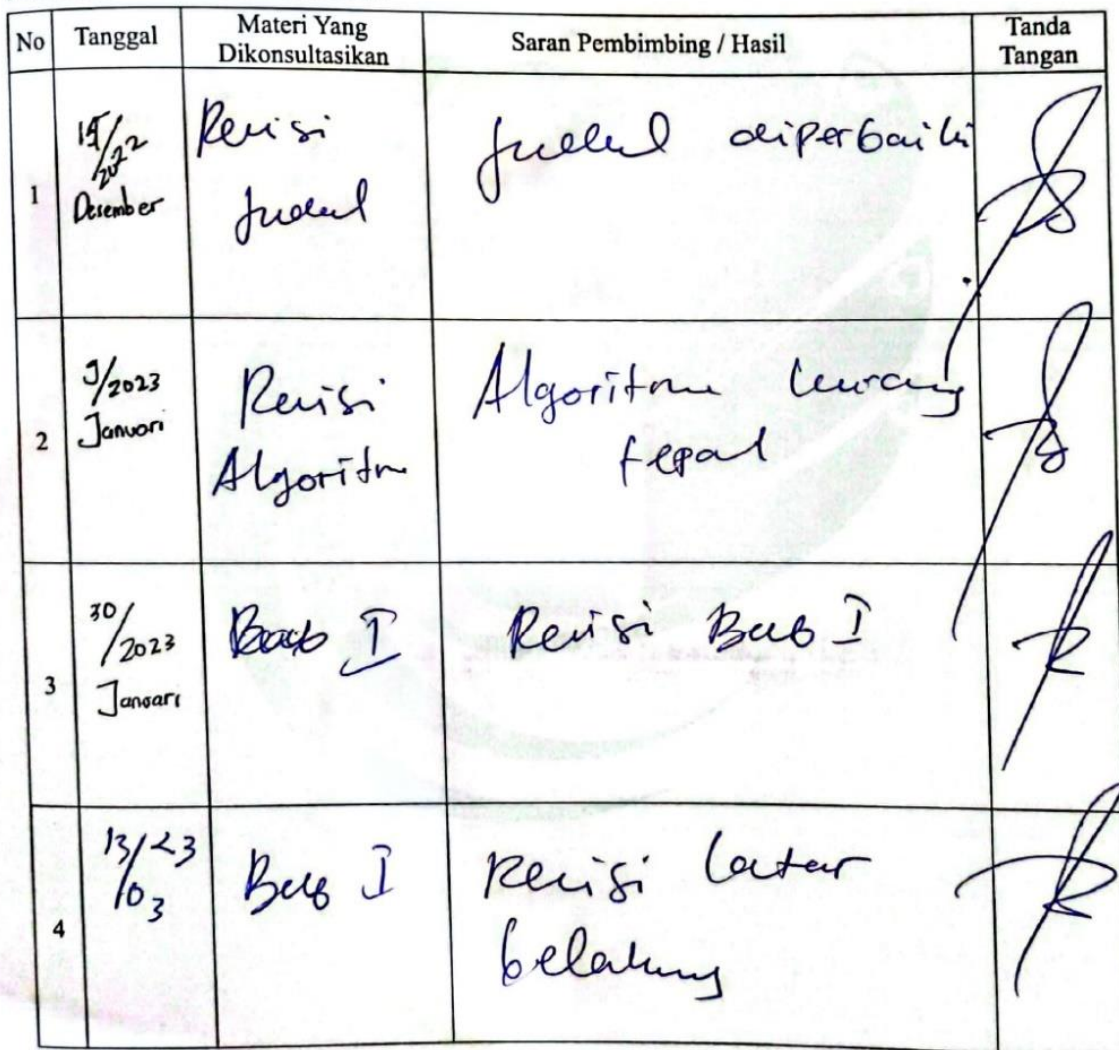 No Tanggal Materi Yang Dikonsultasikan Saran Pembimbing / Hasil Tanda Tangan
1
/2022
Desember
Revisi
Judul
Judul diperbaiki
2
/2023
Januari
Revisi
Algoritm
Algoritma kurang
tepat
3
30/
/2023
Januari
Bab I
Revisi Bab I
4
13/23
/03
Bab I
Revisi latar
belakang